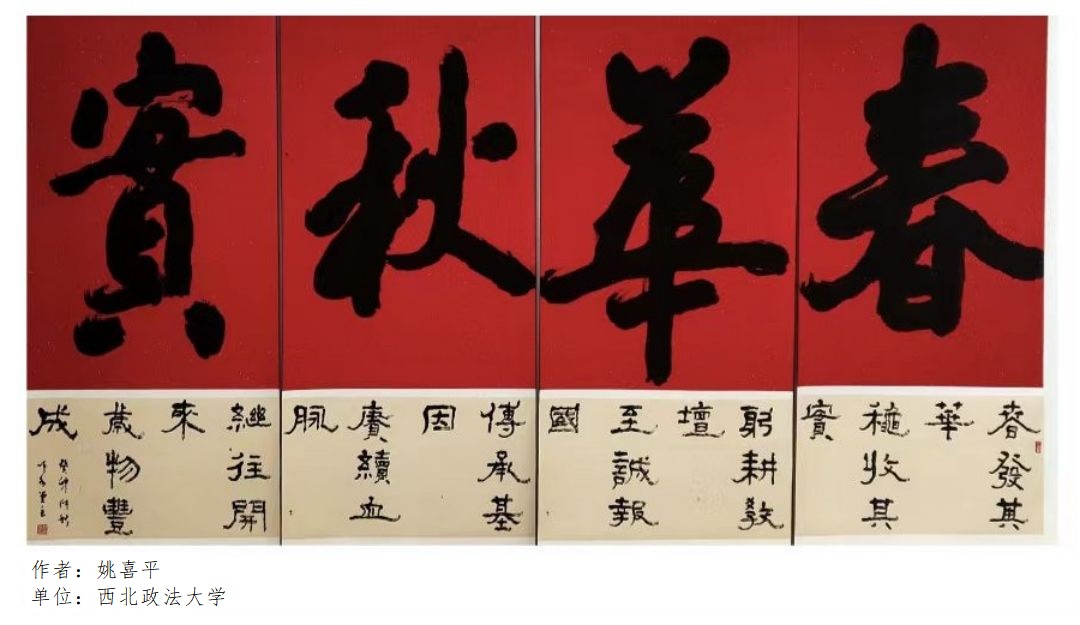 春
華
秋
實
春發其
華
穐收其
實
躬耕教
壇
至誠報
國
傳承基
因
賡續血
脈
繼往開
來
歲物豐
成
癸卯仲秋
作者：姚喜平
单位：西北政法大学